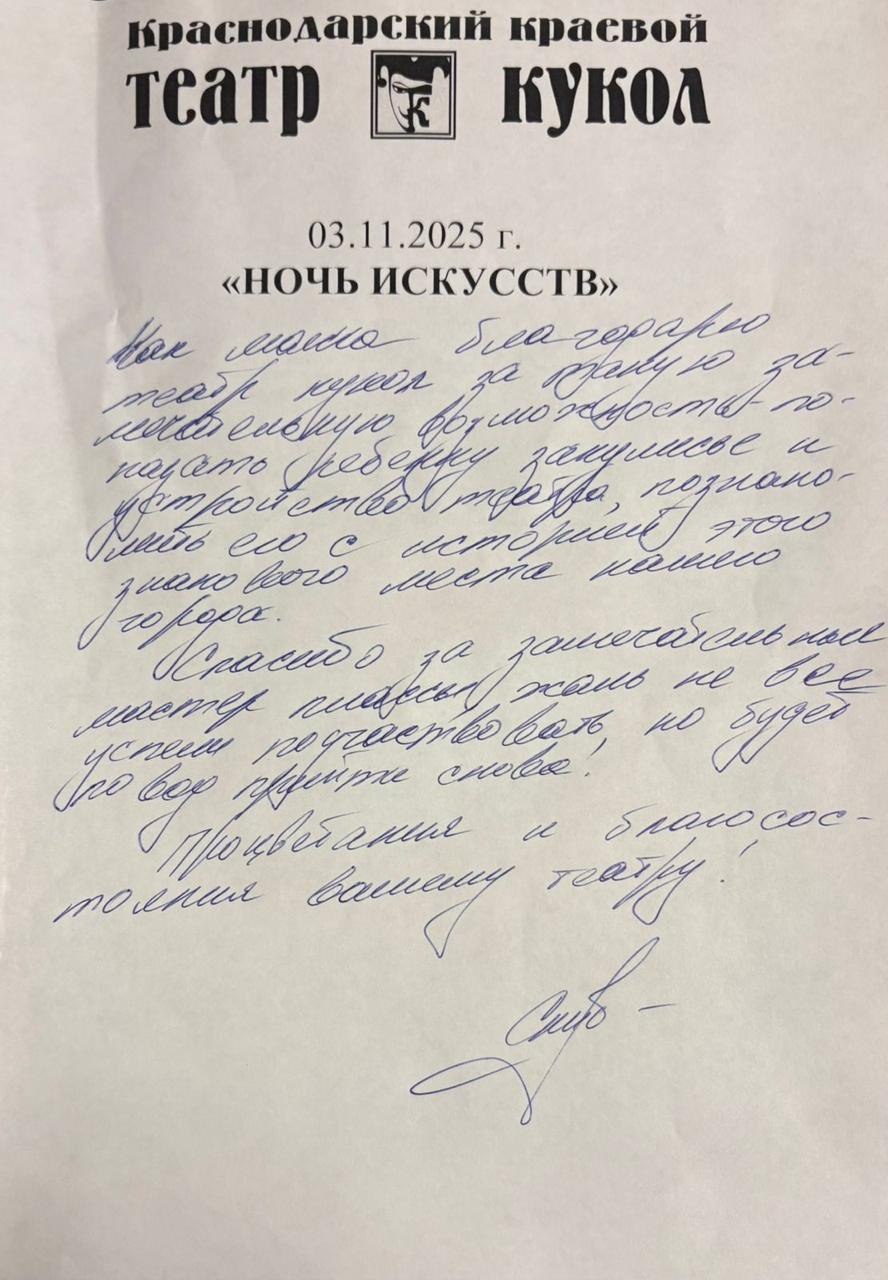 Краснодарский краевой
театр ТК кукол
03.11.2025 г.
«НОЧЬ ИСКУССТВ»
Как мама благодарю
театр кукол за такую за-
мечательную возможность по-
казать ребенку закулисье и
устройство театра, познако-
мить его с историей этого
знакового места нашего
города.
Спасибо за замечательные
мастер классы жаль не все
успели поучаствовать, но будет
повод прийти снова!
Процветания и благосос-
тояния вашему театру!